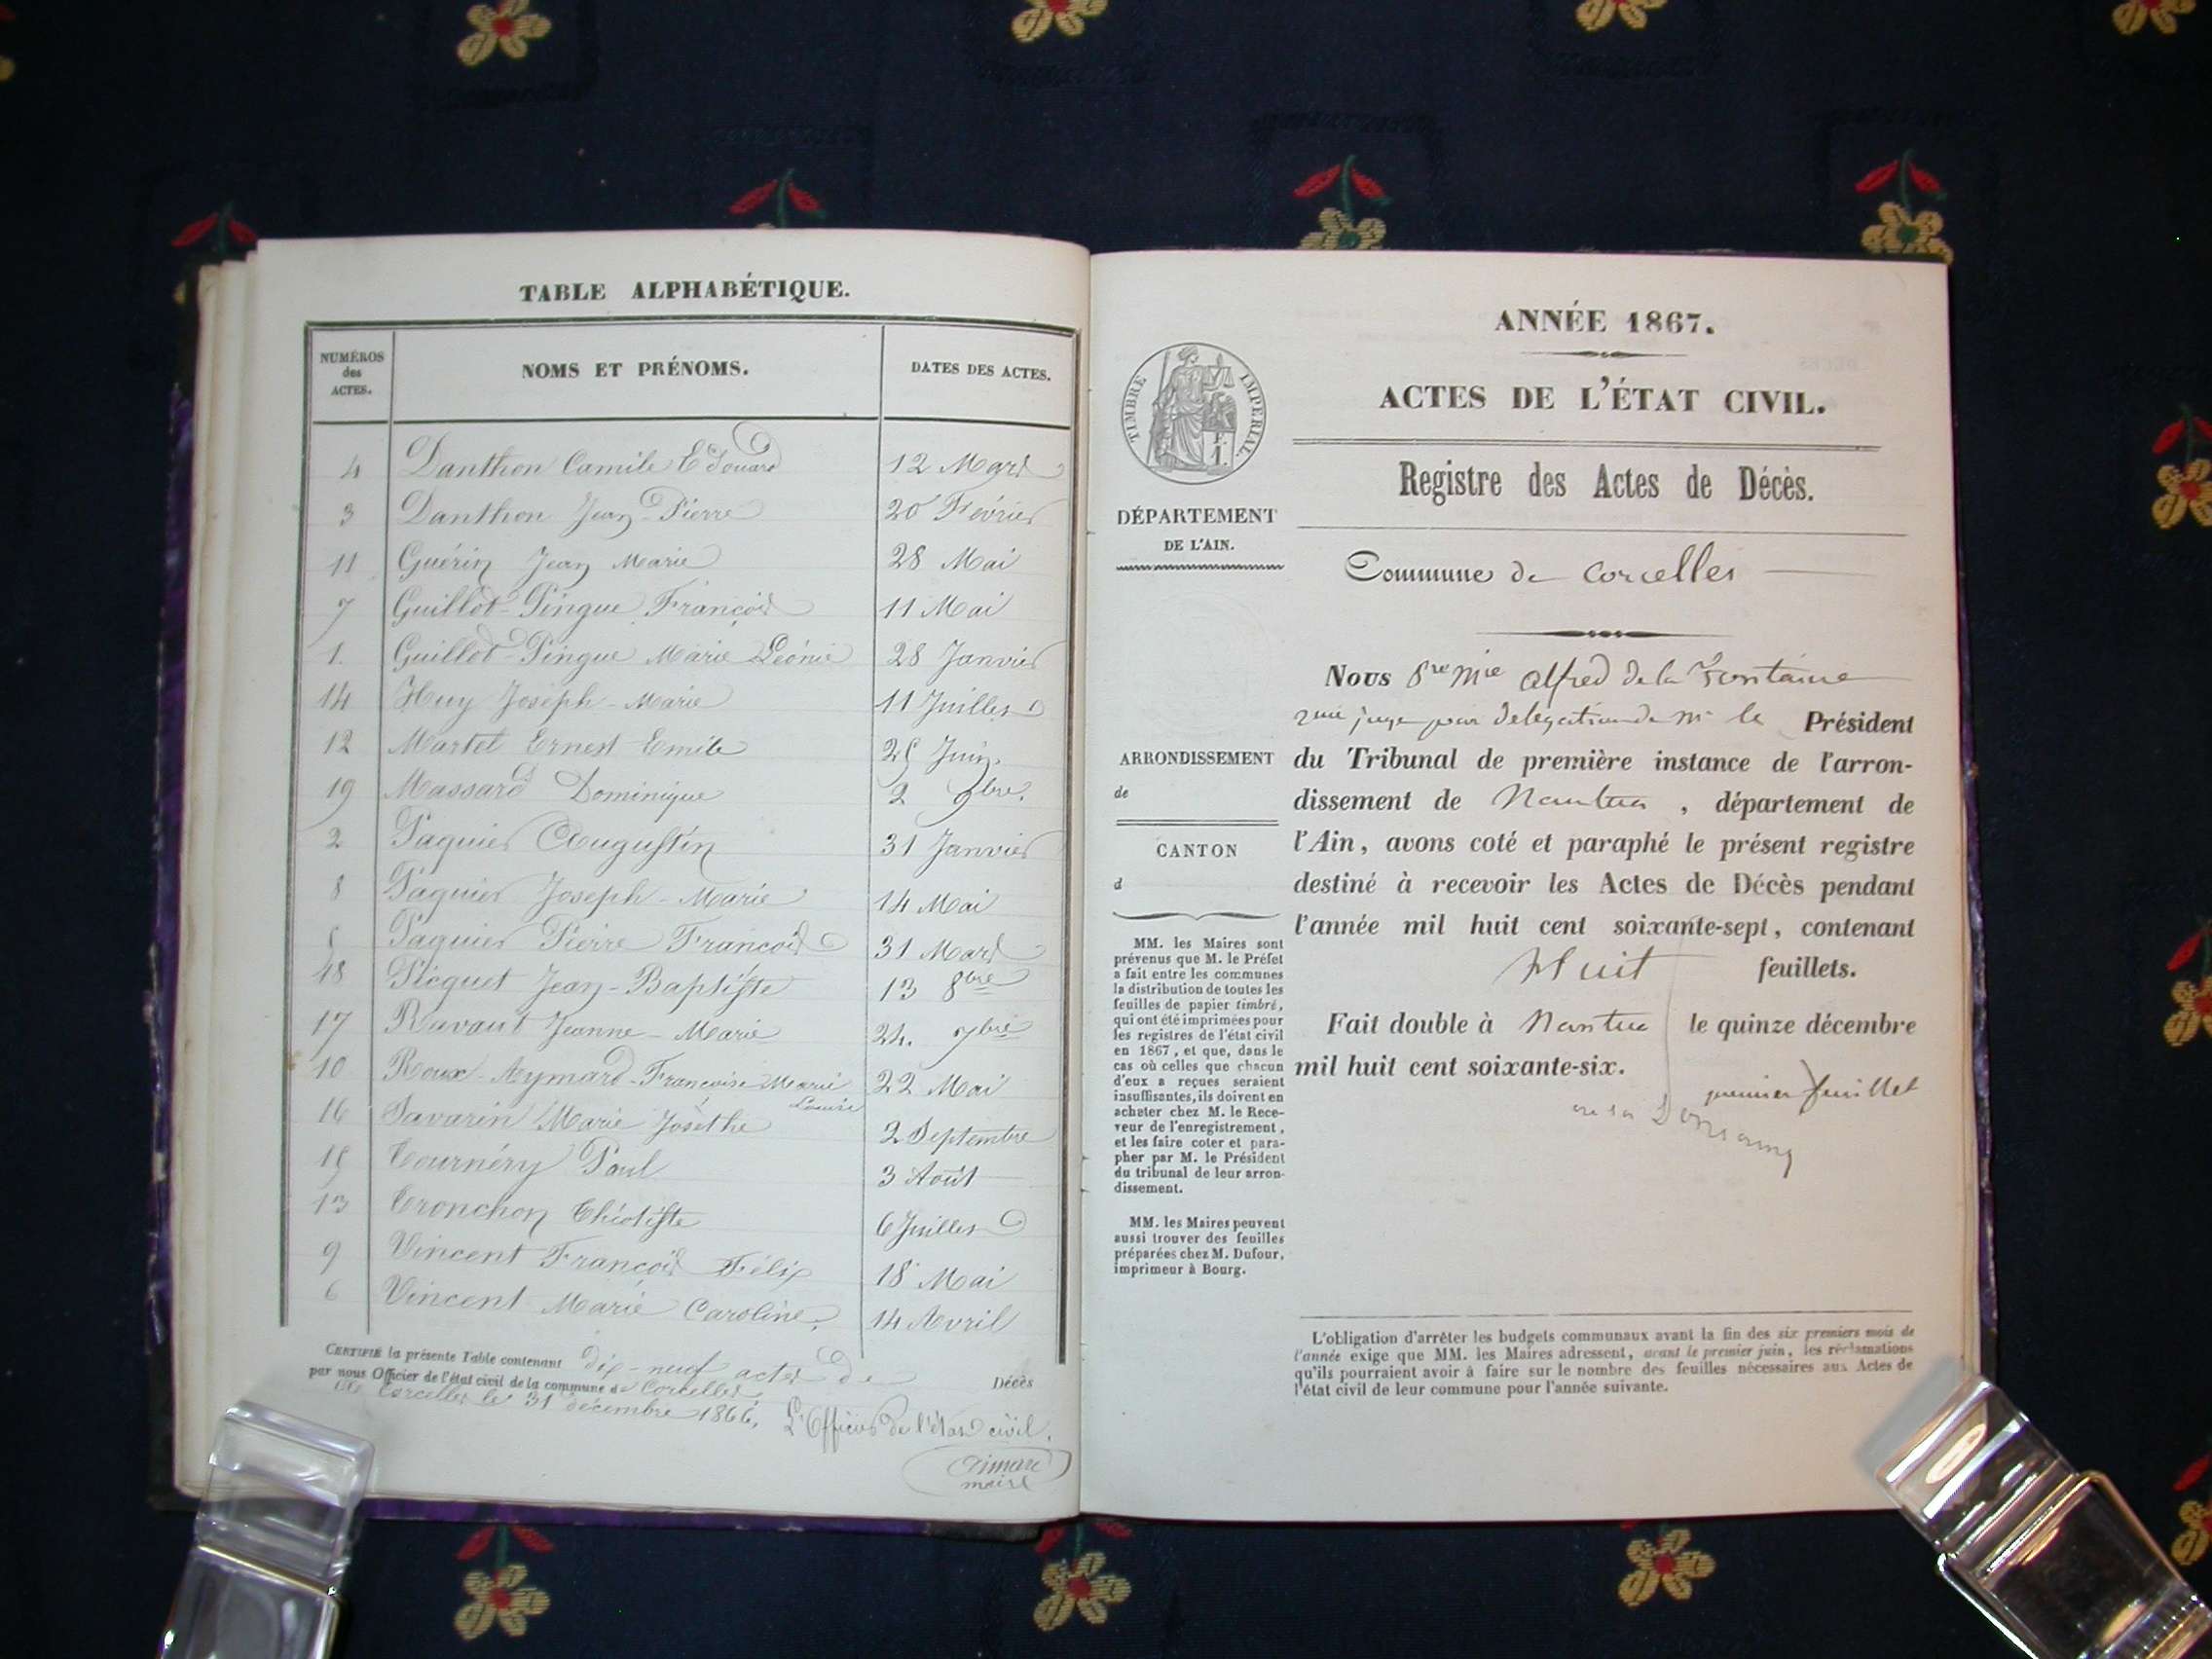 TABLE ALPHABÉTIQUE.
NUMÉROS des ACTES.
NOMS ET PRÉNOMS.
DATES DES ACTES.
4 Danthon Camile Edouard 12 Mars
3 Danthon Jean-Pierre 20 Février
11 Guérin Jean Marie 28 Mai
7 Guillot-Pingue François 11 Mai
1. Guillot-Pingue Marie Léonie 28 Janvier
14 Huy Joseph-Marie 11 Juillet
12 Martel Ernest Emile 25 Juin.
19 Massard Dominique 2 9bre.
2 Paquier Augustin 31 Janvier
8 Paquier Joseph-Marie 14 Mai
5 Paquier Pierre François 31 Mars
18 Picquet Jean-Baptiste 13 8bre
17 Ravaut Jeanne-Marie 24. 7bre
10 Roux-Aymard-Françoise Marie Louise 22 Mai
16 Savarin Marie Josèthe 2 Septembre
15 Tournéry Paul 3 Août
13 Tronchon Théotiste 6 Juillet
9 Vincent François Félix 18 Mai
6 Vincent Marie Caroline. 14 Avril
CERTIFIÉ la présente Table contenant dix-neuf actes de Décès
par nous Officier de l'état civil de la commune de Corcelles
Corcelles le 31 décembre 1866.
L'Officier de l'état civil.
Aimard
maire
ANNÉE 1867.
ACTES DE L'ÉTAT CIVIL.
Registre des Actes de Décès.
TIMBRE IMPÉRIAL.
DÉPARTEMENT
DE L'AIN.
Commune de Corcelles
Nous Pre Mie Alfred de la Fontaine
juge par délégation de Mr le Président
du Tribunal de première instance de l'arron-
dissement de Nantua, département de
l'Ain, avons coté et paraphé le présent registre
destiné à recevoir les Actes de Décès pendant
l'année mil huit cent soixante-sept, contenant
huit feuillets.
Fait double à Nantua le quinze décembre
mil huit cent soixante-six.
premier feuillet
ARRONDISSEMENT
de
CANTON
d
MM. les Maires sont
prévenus que M. le Préfet
a fait entre les communes
la distribution de toutes les
feuilles de papier timbré,
qui ont été imprimées pour
les registres de l'état civil
en 1867, et que, dans le
cas où celles que chacun
d'eux a reçues seraient
insuffisantes, ils doivent en
acheter chez M. le Rece-
veur de l'enregistrement,
et les faire coter et para-
pher par M. le Président
du tribunal de leur arron-
dissement.
MM. les Maires peuvent
aussi trouver des feuilles
préparées chez M. Dufour,
imprimeur à Bourg.
L'obligation d'arrêter les budgets communaux avant la fin des six premiers mois de
l'année exige que MM. les Maires adressent, avant le premier juin, les réclamations
qu'ils pourraient avoir à faire sur le nombre des feuilles nécessaires aux Actes de
l'état civil de leur commune pour l'année suivante.